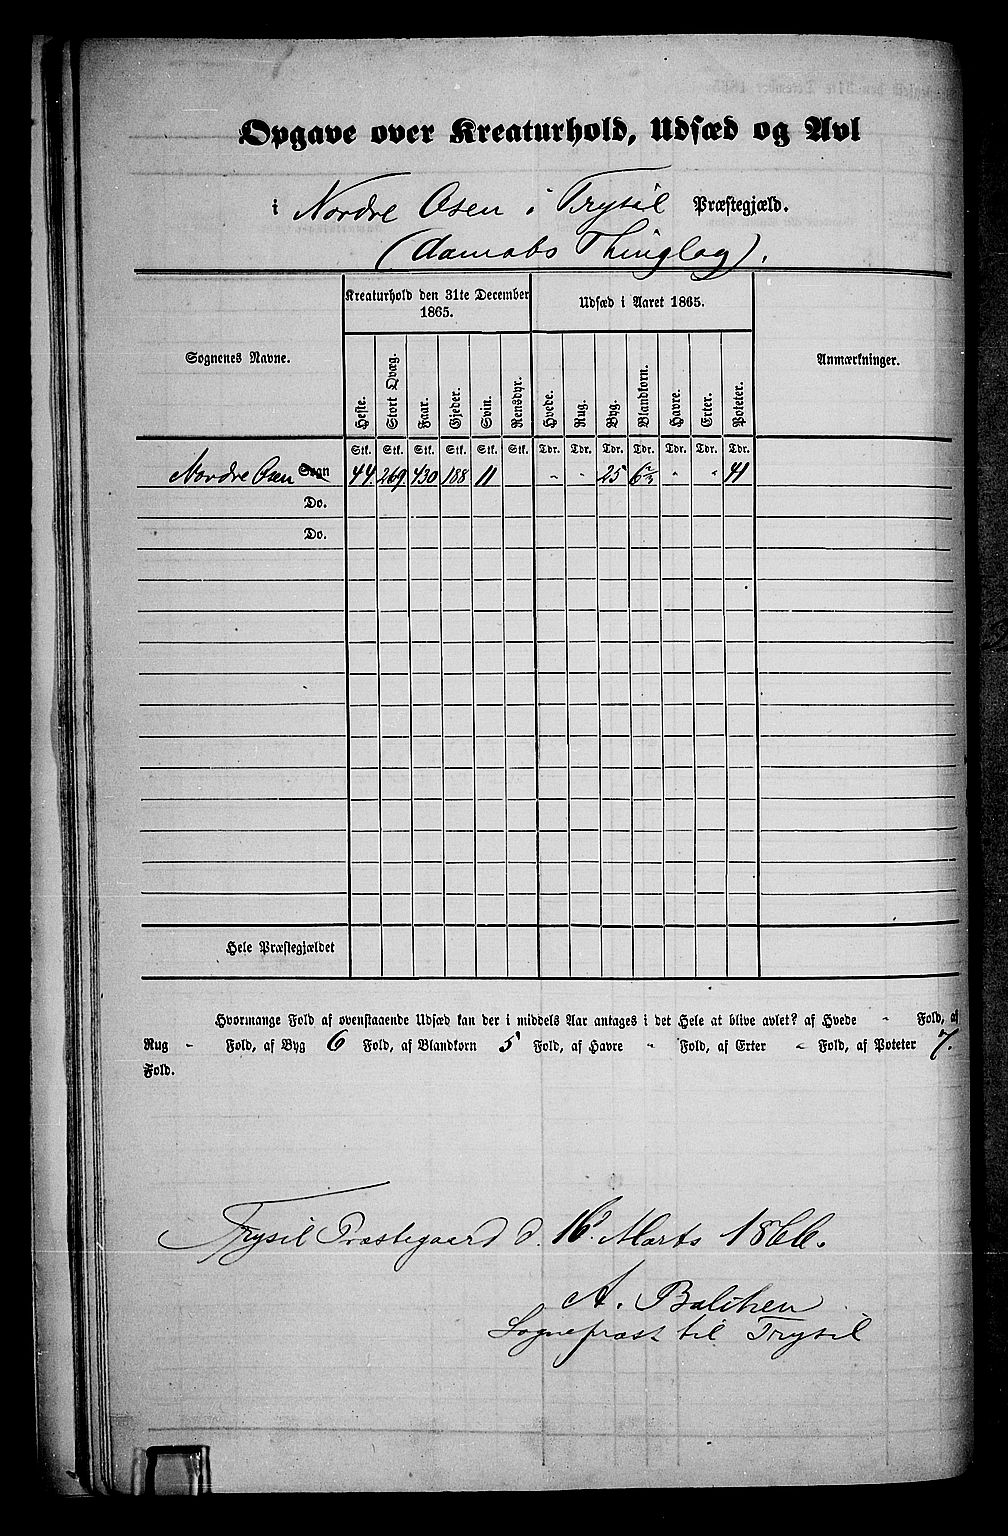 Opgave over Kreaturhold, Udsæd og Avl
i Nordre Osen i Trysil Præstegjæld.
(Aamots Thinglag).
Sognenes Navne.
Kreaturhold den 31te December 1865.
Udsæd i Aaret 1865.
Anmærkninger.
Heste. Stort Qvæg. Faar. Gjeder. Svin. Rensdyr. Hvede. Rug. Byg. Blandkorn. Havre. Erter. Poteter.
Stk. Stk. Stk. Stk. Stk. Stk. Tdr. Tdr. Tdr. Tdr. Tdr. Tdr. Tdr.
Nordre Osen Sogn 44 269 430 188 11 " " 25 " " 41
Do.
Do.
Hele Præstegjældet
Hvormange Fold af ovenstaaende Udsæd kan der i middels Aar antages i det Hele at blive avlet? af Hvede " Fold, af
Rug " Fold, af Byg 6 Fold, af Blandkorn 5 Fold, af Havre " Fold, af Erter " Fold, af Poteter 7.
Fold.
Trysil Præstegaard d. 16. Marts 1866.
A. Balchen
Sognepræst til Trysil